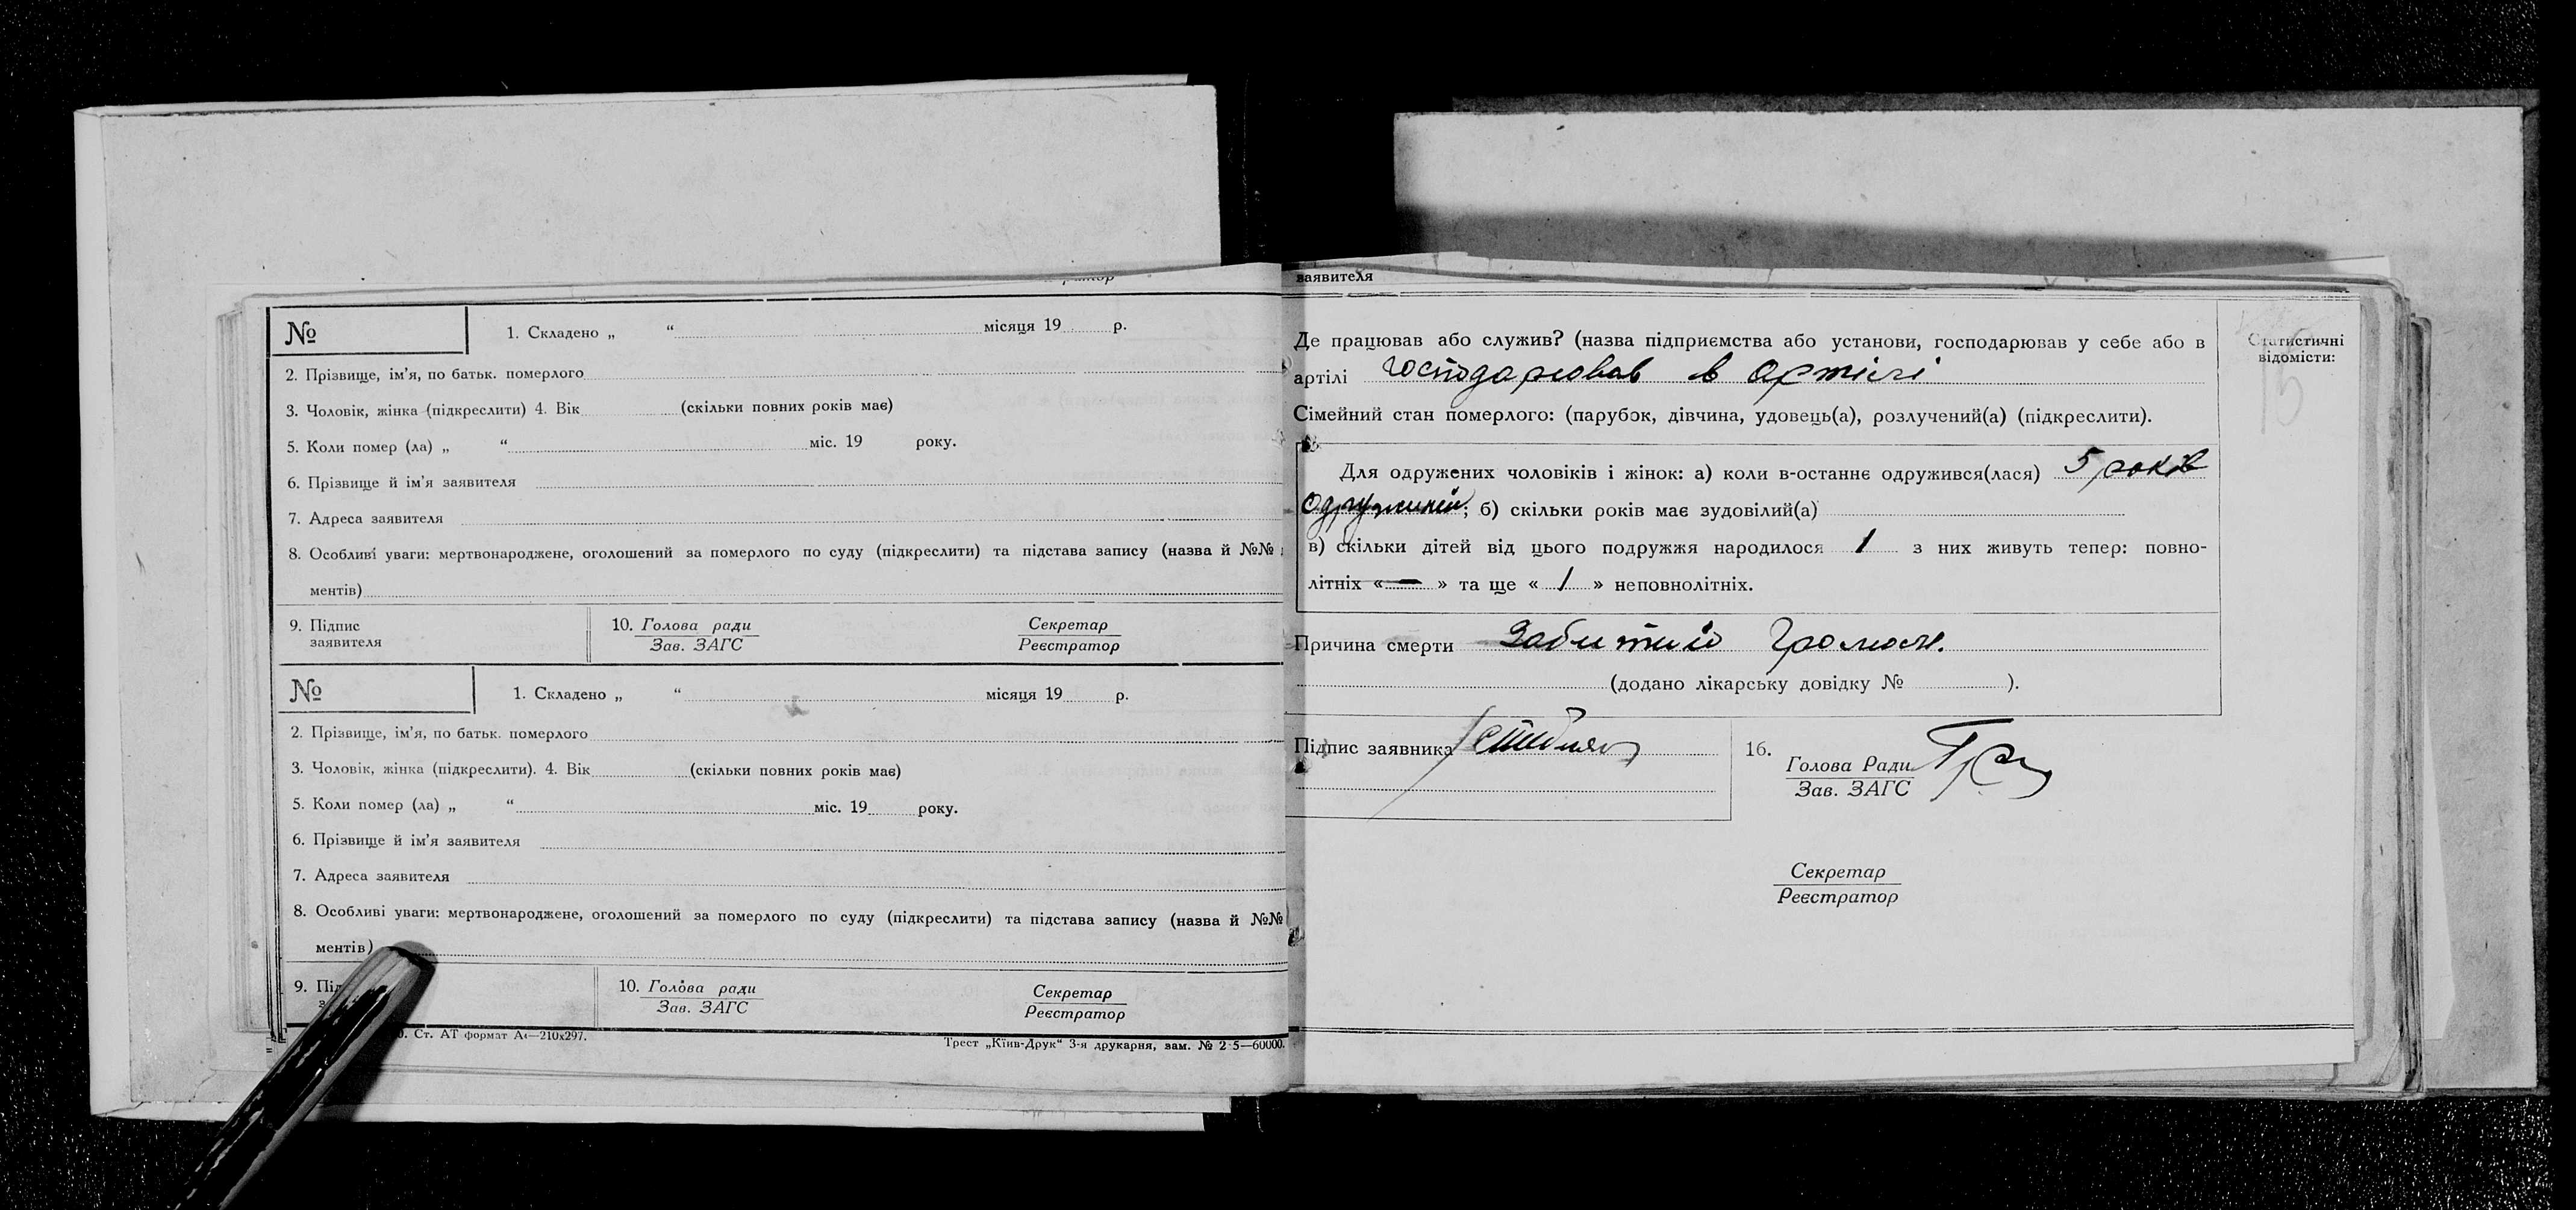 № 1. Складено „ “ місяця 19 р.
2. Прізвище, ім’я, по батьк. померлого
3. Чоловік, жінка (підкреслити) 4. Вік (скільки повних років має)
5. Коли помер (ла) „ “ міс. 19 року.
6. Прізвище й ім’я заявителя
7. Адреса заявителя
8. Особливі уваги: мертвонароджене, оголошений за померлого по суду (підкреслити) та підстава запису (назва й №№
ментів)
9. Підпис заявителя
10. Голова ради
Зав. ЗАГС
Секретар
Реєстратор
№ 1. Складено „ “ місяця 19 р.
2. Прізвище, ім’я, по батьк. померлого
3. Чоловік, жінка (підкреслити). 4. Вік (скільки повних років має)
5. Коли помер (ла) „ “ міс. 19 року.
6. Прізвище й ім’я заявителя
7. Адреса заявителя
8. Особливі уваги: мертвонароджене, оголошений за померлого по суду (підкреслити) та підстава запису (назва й №№
ментів)
9. Під
10. Голова ради
Зав. ЗАГС
Секретар
Реєстратор
Ст. АТ формат А4—210х297.
Трест „Київ-Друк“ 3-я друкарня, зам. № 2 5—60000.
заявителя
Де працював або служив? (назва підприємства або установи, господарював у себе або в
артілі господарював в артілі
Сімейний стан померлого: (парубок, дівчина, удовець(а), розлучений(а) (підкреслити).
Для одружених чоловіків і жінок: а) коли в-останнє одружився(лася) 5 років
одружений; б) скільки років має зудовілий(а)
в) скільки дітей від цього подружжя народилося 1 з них живуть тепер: повно-
літніх «—» та ще «1» неповнолітніх.
Причина смерти Забитий Громом.
(додано лікарську довідку № ).
Підпис заявника
16.
Голова Ради
Зав. ЗАГС
Секретар
Реєстратор
Статистичні
відомісти: